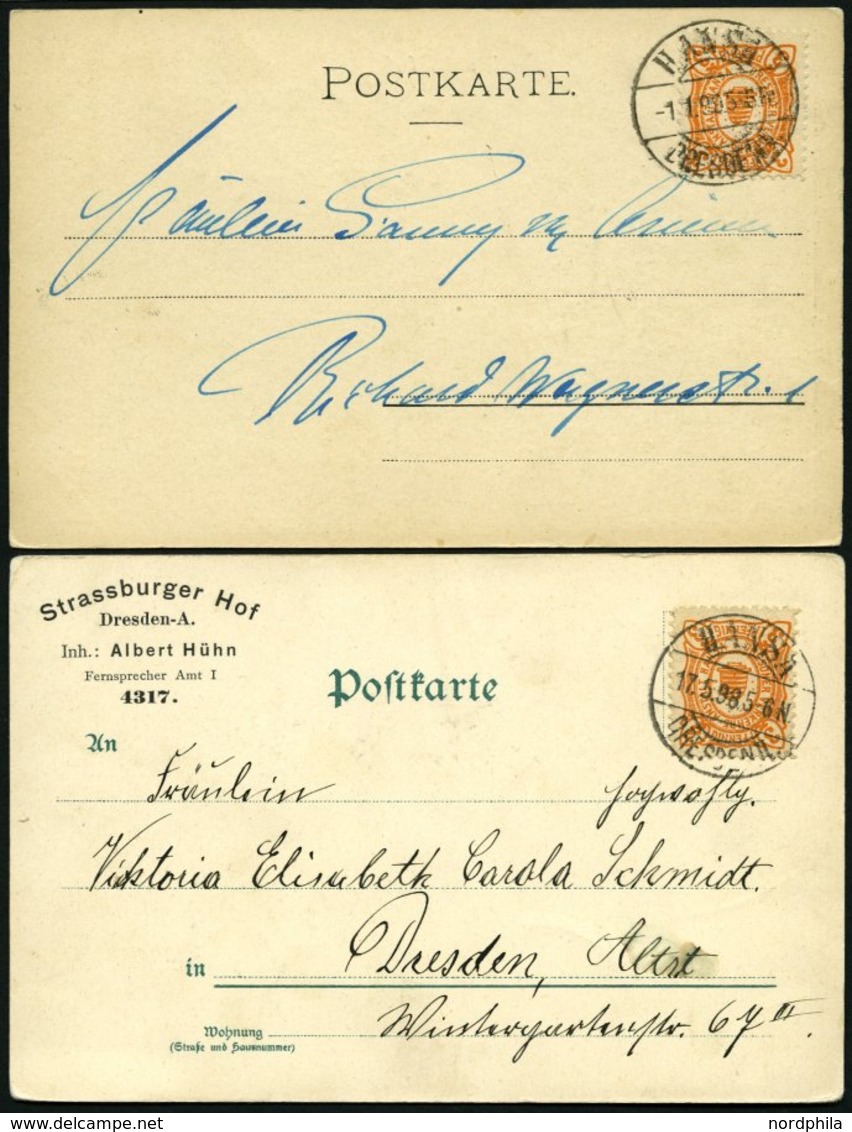 POSTKARTE.
HANSA
-1.1.98.5-6N
DRESDEN
Fräulein Fanny
Richard Wagnerstr. 1
Strassburger Hof
Dresden-A.
Inh.: Albert Hühn
Fernsprecher Amt I
4317.
Postkarte
HANSA
17.5.98.5-6N
DRESDEN
An
Fräulein
Viktoria Elisabeth Carola Schmidt.
in Dresden, Altst
Wohnung Wintergartenstr. 67 III.
(Straße und Hausnummer)
nordphila